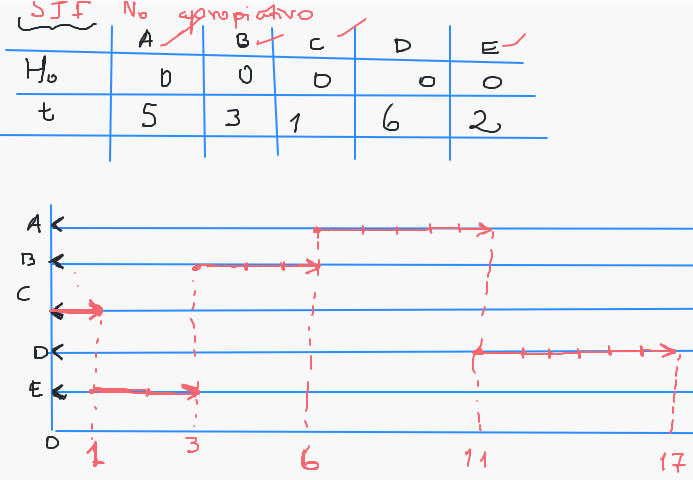 SJF No apropiativo
A B C D E
H₀ 0 0 0 0 0
t 5 3 1 6 2
A
B
C
D
E
0 1 3 6 11 17